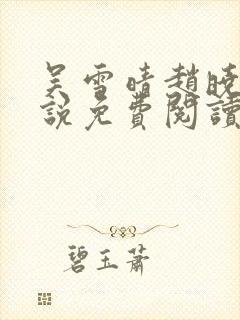 吴雪晴趙曉
說免費閱讀
碧玉蕭